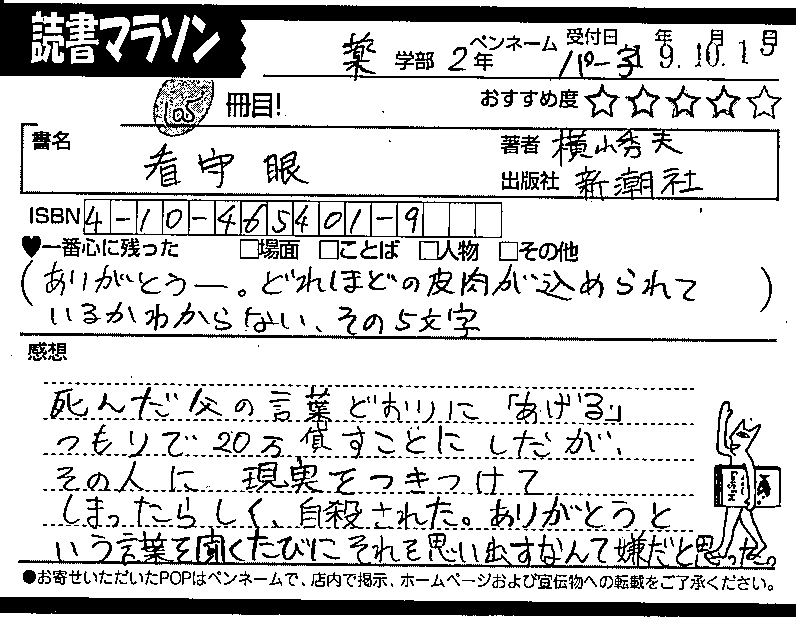 読書マラソン
薬 学部 2年 ペンネーム パー子 受付日 年 月 日 9.10.15
105 冊目! おすすめ度 ☆☆☆☆☆
書名 看守眼 著者 横山秀夫
出版社 新潮社
ISBN 4-10-465401-9
♥一番心に残った □場面 □ことば □人物 □その他
(ありがとうー。どれほどの皮肉が込められて
いるかわからない、その5文字)
感想
死んだ父の言葉どおりに「あげる」
つもりで20万貸すことにしだが、
その人に現実をつきつけて
しまったらしく、自殺された。ありがとうと
いう言葉を聞くたびにそれを思い出すなんて嫌だと思った。
●お寄せいただいたPOPはペンネームで、店内で掲示、ホームページおよび宣伝物への転載をご了承ください。